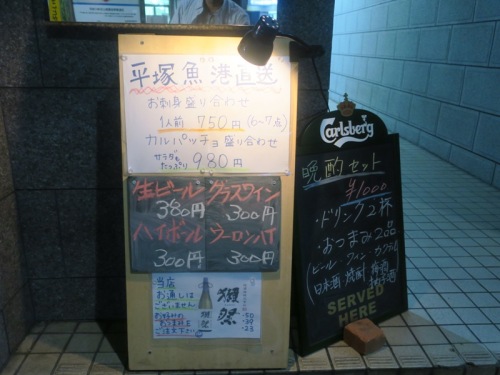 平塚魚港直送
お刺身盛り合わせ
1人前 750円 (6~7点)
カルパッチョ盛り合わせ
サラダもたっぷり 980円
生ビール 380円
グラスワイン 300円
ハイボール 300円
ウーロンハイ 300円
当店
お通しは
ございません
獺祭
獺祭
-50
-39
-23
Carlsberg
晩酌セット
¥1000
・ドリンク2杯
・おつまみ2品
(ビール・ワイン・カクテル
日本酒・焼酎・梅酒
SERVED
HERE